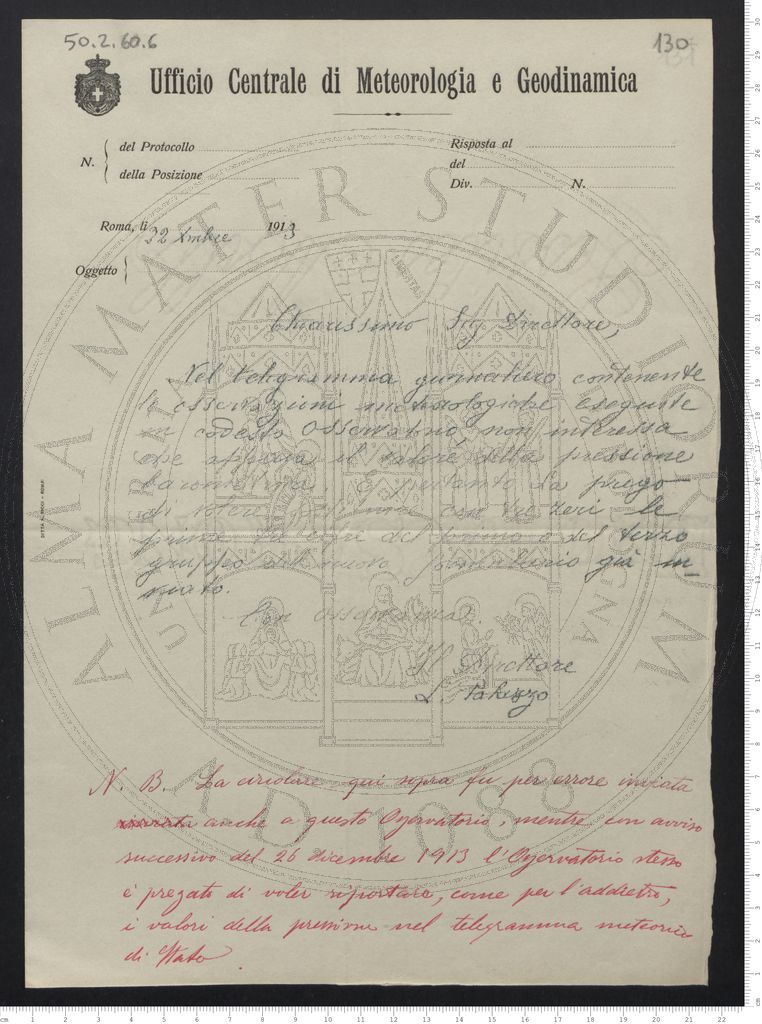 50.2.60.6
130
Ufficio Centrale di Meteorologia e Geodinamica
N.
del Protocollo
della Posizione
Risposta al
del
Div. N.
Roma, li 22 Xmbre 1913
Oggetto
Chiarissimo Sig. Direttore,
Nel telegramma giornaliero contenente
le osservazioni meteorologiche eseguite
in codesto Osservatorio, non interessa
che apparisca il valore della pressione
barometrica. È pertanto La prego
di volere con tre zeri le
prime tre cifre del primo e del terzo
gruppo del nuovo formulario già in-
viato.
Con osservanza.
Il Direttore
L. Palazzo
N. B. La circolare qui sopra fu per errore inviata
anche a questo Osservatorio, mentre con avviso
successivo del 26 dicembre 1913 l'Osservatorio stesso
è pregato di voler riportare, come per l'addietro,
i valori della pressione nel telegramma meteorico
di Stato.
ALMA MATER STUDIORUM
A.D. 1088